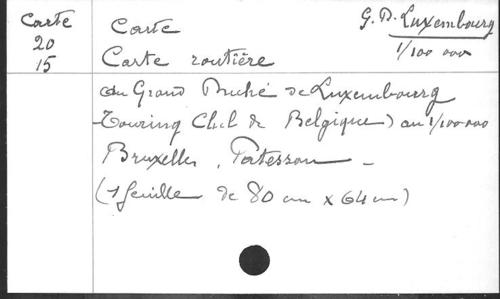 Carte
20
15
Carte
G. D. Luxembourg
1/100 000
Carte routière
du Grand Duché de Luxembourg
Touring Club de Belgique) au 1/100 000
Bruxelles,
(1 feuille de 80 cm x 64 cm)